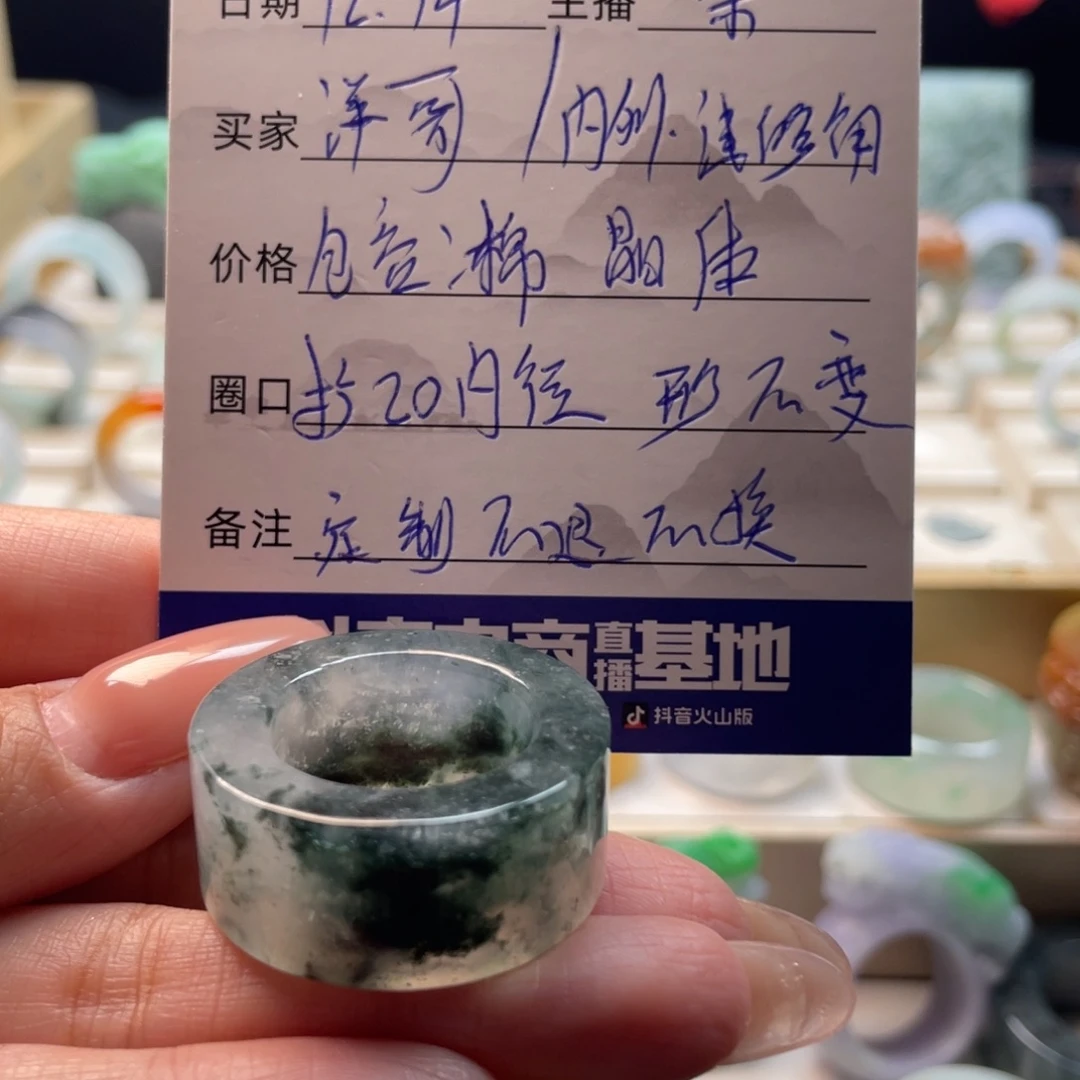 日期 12.14 主播
买家 洋哥 / 内
价格 包含 棉 晶体
圈口 扩20内径 形不变
备注 定制 不退 不换
电商直播基地
抖音火山版